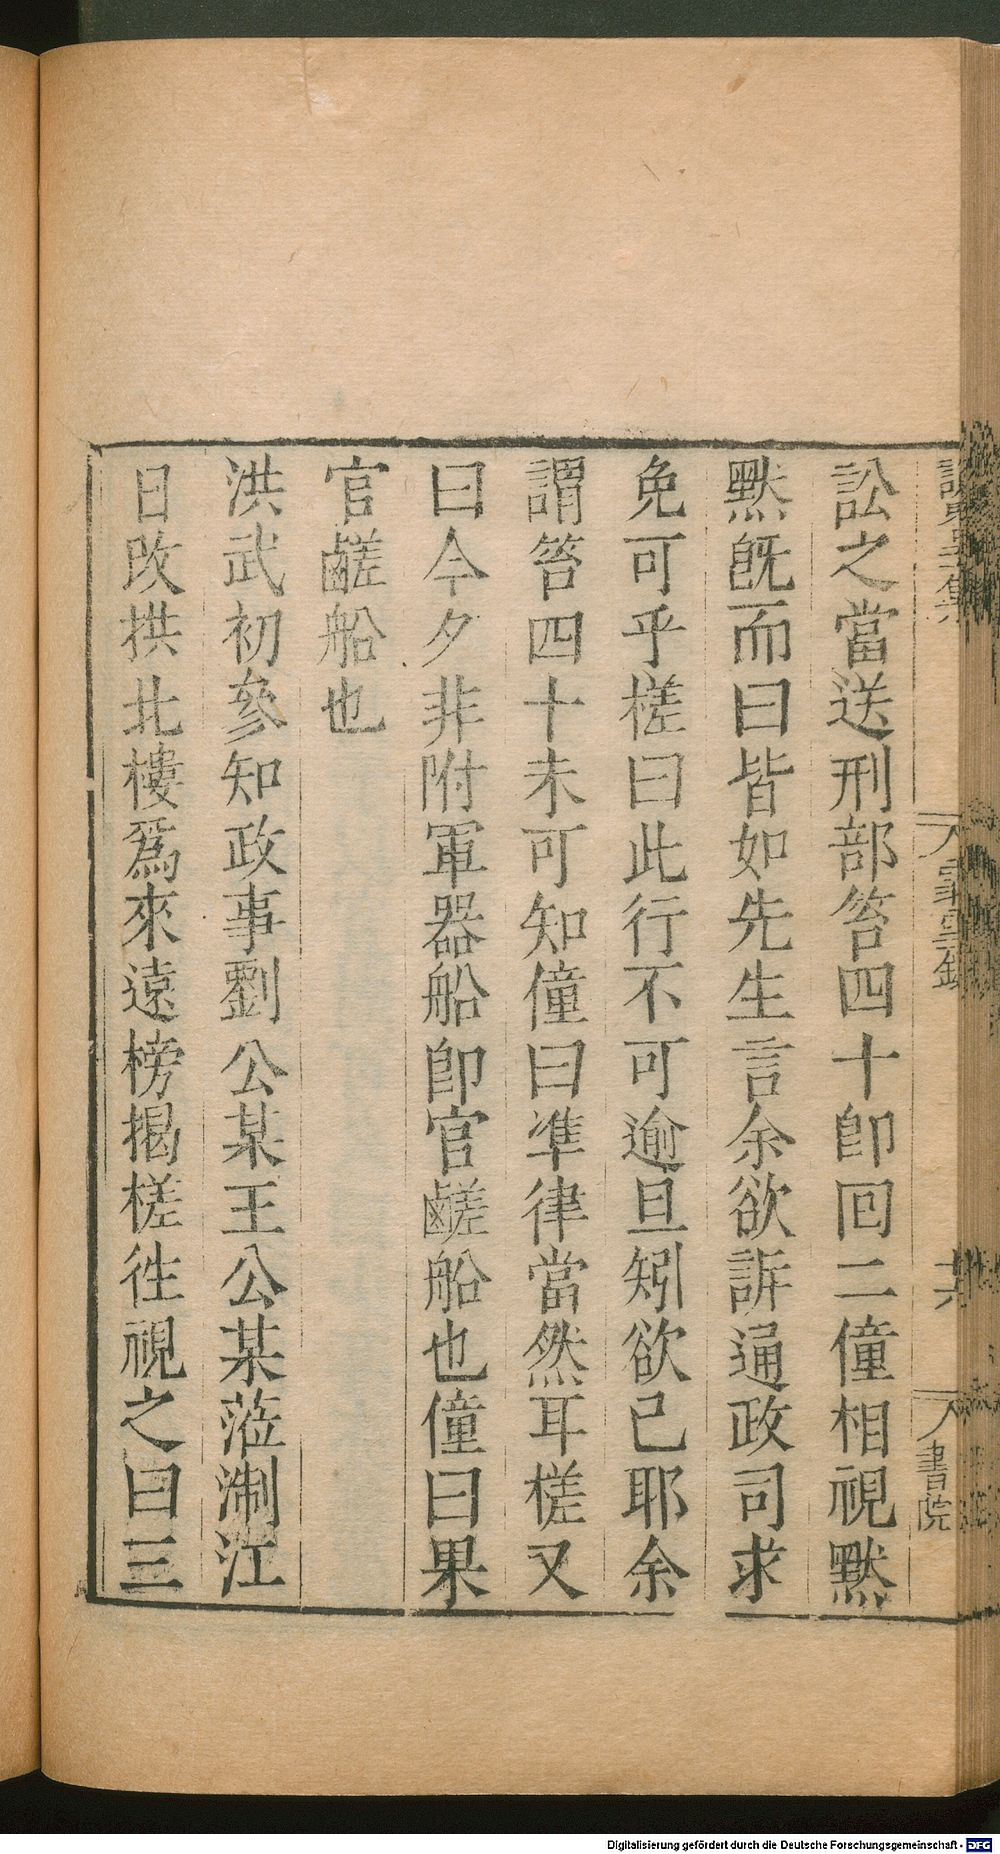 訟之當送刑部笞四十卽囘二僮相視黙
黙旣而曰皆如先生言余欲訴通政司求
免可乎槎曰此行不可逾旦矧欲已耶余
謂笞四十未可知僮曰準律當然耳槎又
曰今夕非附軍器船卽官鹺船也僮曰果
官鹺船也
洪武初參知政事劉公某王公某蒞淛江
日改拱北樓爲來遠榜揭槎徃視之曰三
書院
Digitalisierung gefördert durch die Deutsche Forschungsgemeinschaft - DFG